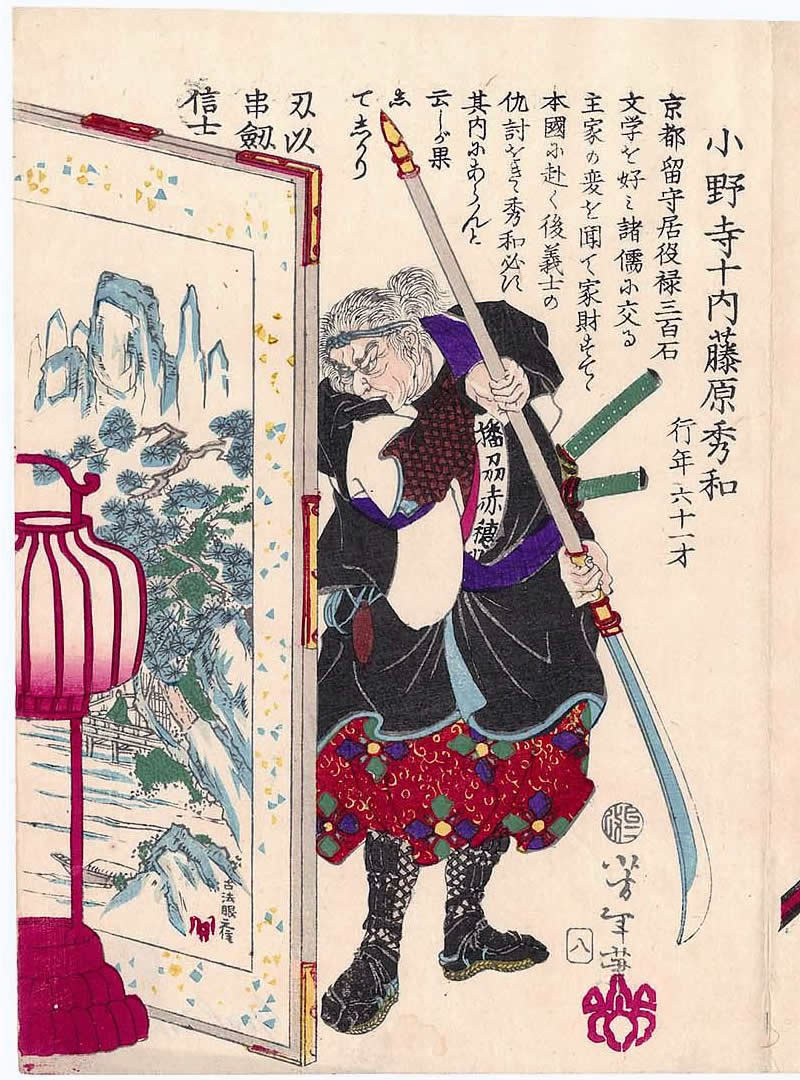 小野寺十内藤原秀和
行年六十一才
京都留守居役禄三百石
文学を好ミ諸儒に交る
主家の変を聞て家財すて
本國に赴く後義士の
仇討をきゝ秀和必ず
其内にあらんと
云しが果
し
てしかり
刃以
串劔
信士
播刕赤穂
古法眼元信
芳年画
八